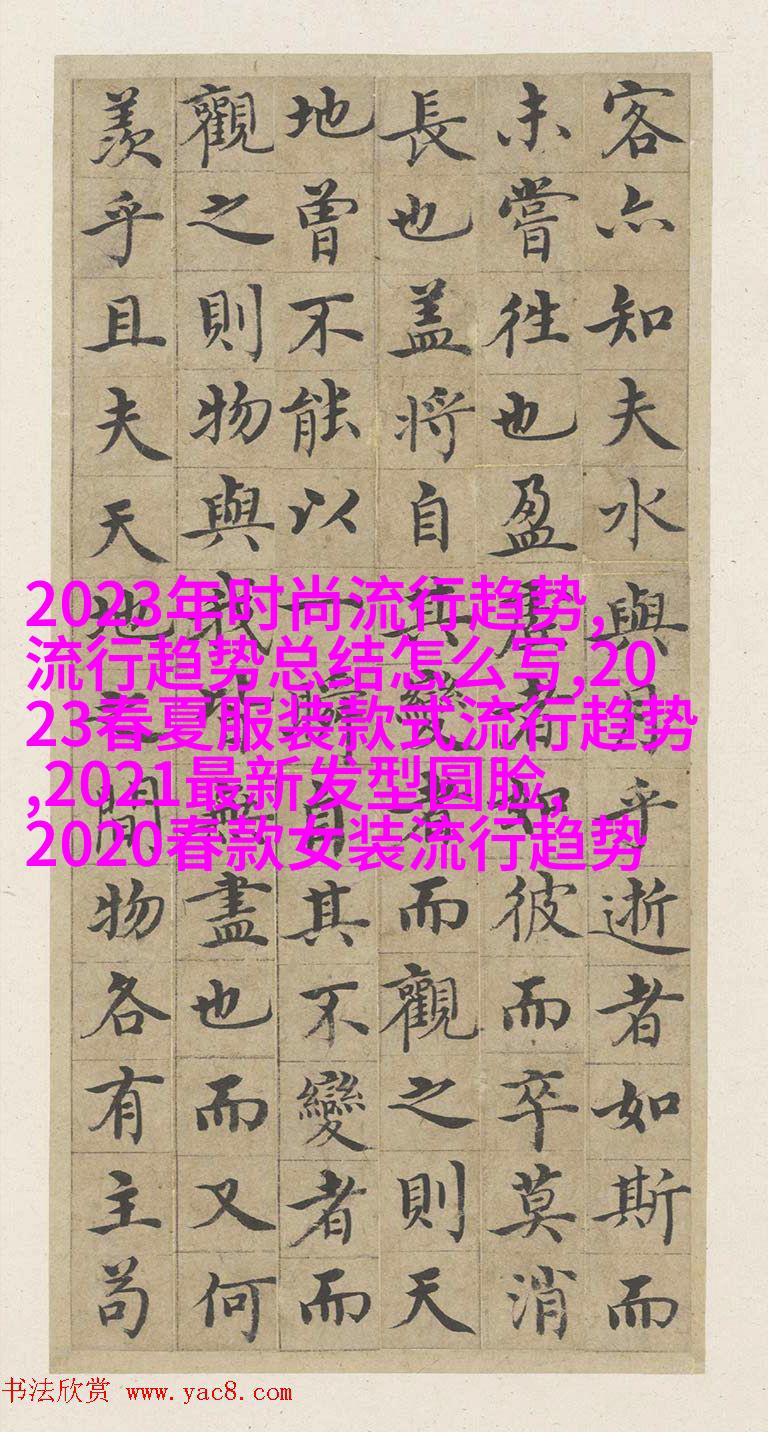 客亦知夫水與月乎逝者如斯而
未嘗往也盈虛者如彼而卒莫消
長也盖将自其變者而觀之則天
地曾不能以一瞬自其不變者而
觀之則物與我皆無盡也而又何
羨乎且夫天地之間物各有主苟
2023年时尚流行趋势,
流行趋势总结怎么写,20
23春夏服装款式流行趋势
,2021最新发型圆脸,
2020春款女装流行趋势
书法欣赏 www.yac8.com